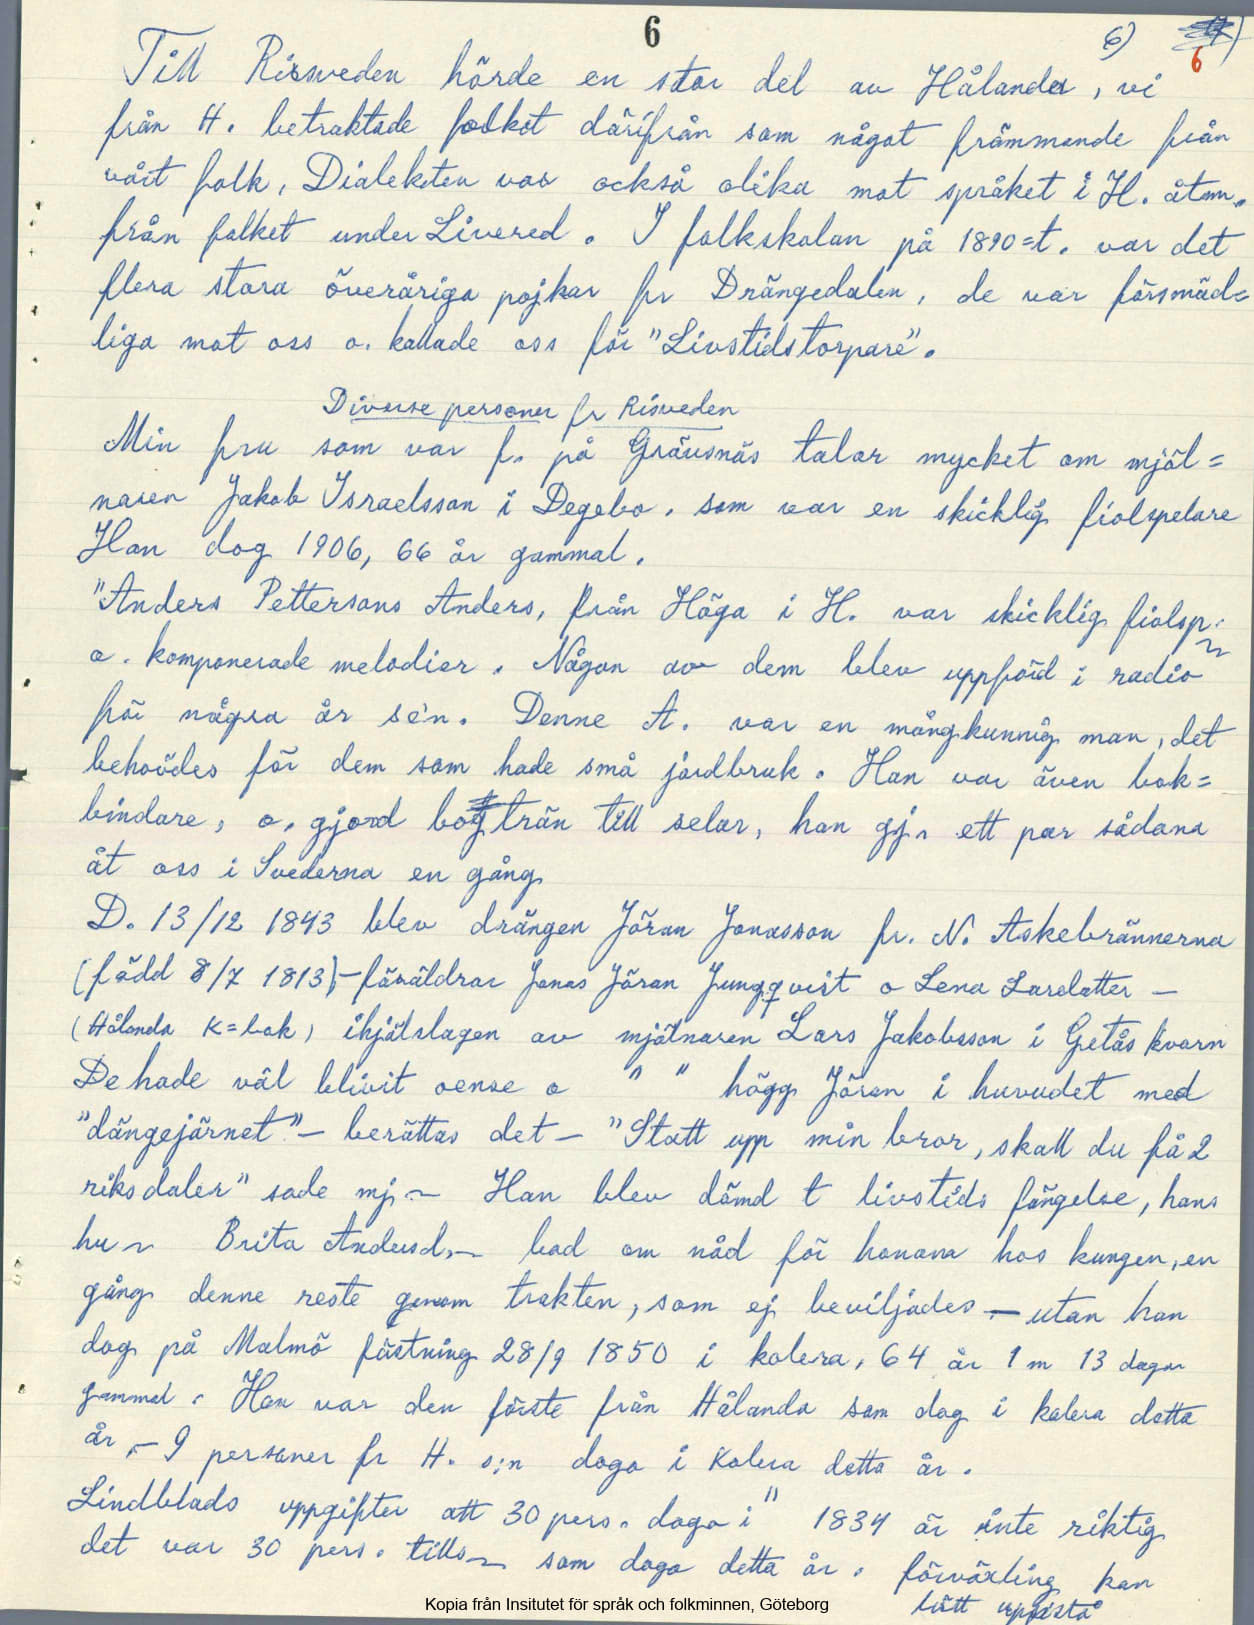 6
6)
6
Till Risveden hörde en stor del av Hålanda, vi
från H. betraktade folket därifrån som något främmande från
vårt folk, Dialekten var också olika mot språket i H. åtm.
från folket under Livered. I folkskolan på 1890=t. var det
flera stora överåriga pojkar fr Drängedalen, de var försmäd=
liga mot oss o. kallade oss för "Livstidstorpare".
Diverse personer fr Risveden
Min fru som var f. på Grävsnäs talar mycket om mjöl=
naren Jakob Israelsson i Degebo. som var en skicklig fiolspelare
Han dog 1906, 66 år gammal.
"Anders Pettersons Anders, från Höga i H. var skicklig fiolsp.
o. komponerade melodier. Någon av dem blev uppförd i radio
för några år se'n. Denne A. var en mångkunnig man, det
behövdes för dem som hade små jordbruk. Han var även bok=
bindare, o. gjord bogträn till selar, han gj. ett par sådana
åt oss i Svederna en gång
D. 13/12 1843 blev drängen Jöran Jonasson fr. N. Askebrännerna
(född 8/7 1813)-föräldrar Jonas Jöran Jungqvist o Lena Larsdatter -
(Hålanda K=bok) ihjälslagen av mjölnaren Lars Jakobsson i Getås kvarn
De hade väl blivit oense o " " högg Jöran i huvudet med
"dängejärnet" - berättas det - "Statt upp min bror, skall du få 2
riksdaler" sade mj. Han blev dömd t livstids fängelse, hans
hu Brita Andersd. - bad om nåd för honom hos kungen, en
gång denne reste genom trakten, som ej beviljades - utan han
dog på Malmö fästning 28/9 1850 i kolera, 64 år 1 m 13 dagar
gammal. Han var den förste från Hålanda som dog i kolera detta
år. - 9 personer fr H. s:n dogo i Kolera detta år.
Lindblads uppgifter att 30 pers. dogo i " 1834 är inte riktig
det var 30 pers. tills som dogo detta år. förväxling kan
lätt uppstå
Kopia från Insitutet för språk och folkminnen, Göteborg